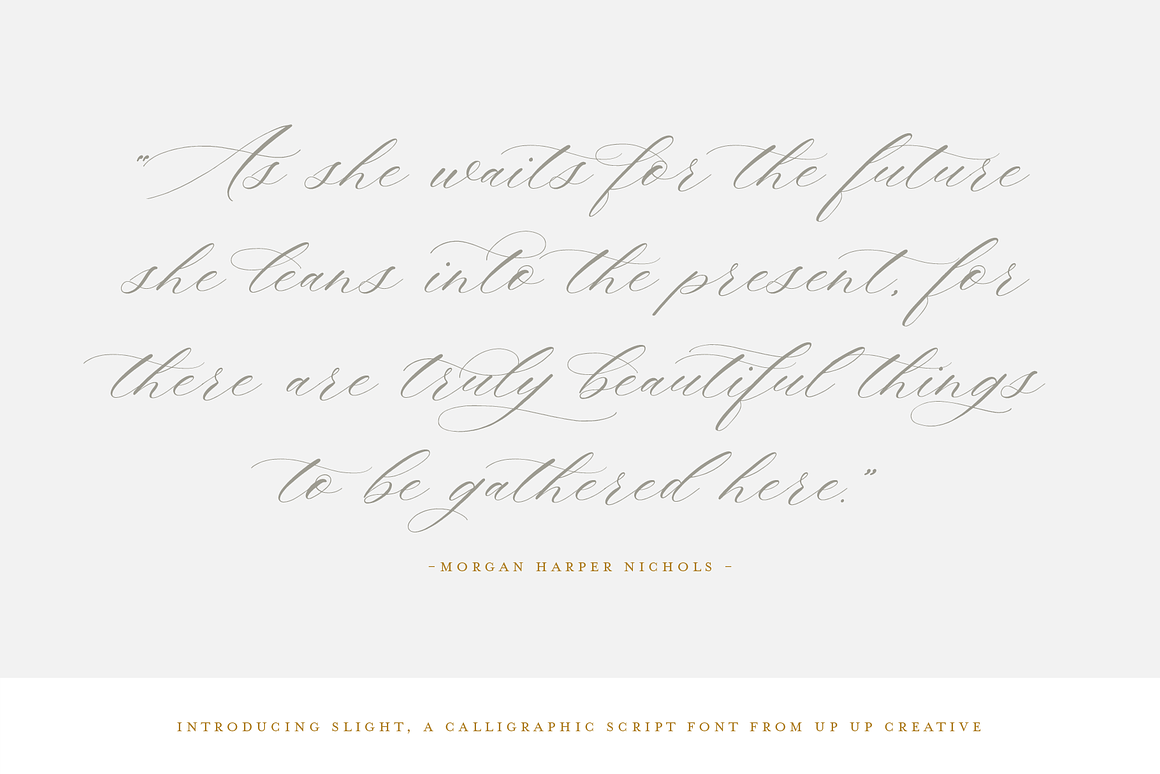 "As she waits for the future
she leans into the present, for
there are truly beautiful things
to be gathered here."
–MORGAN HARPER NICHOLS –
INTRODUCING SLIGHT, A CALLIGRAPHIC SCRIPT FONT FROM UP UP CREATIVE